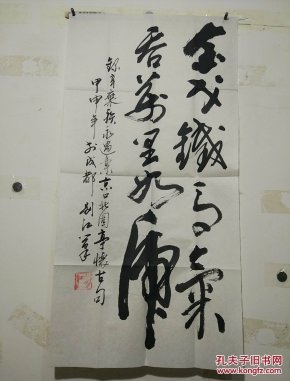 金戈铁马气
吞万里如虎
录辛弃疾永遇乐京口北固亭怀古句
甲申年于成都 刘江笔
孔夫子旧书网
www.kongfz.com